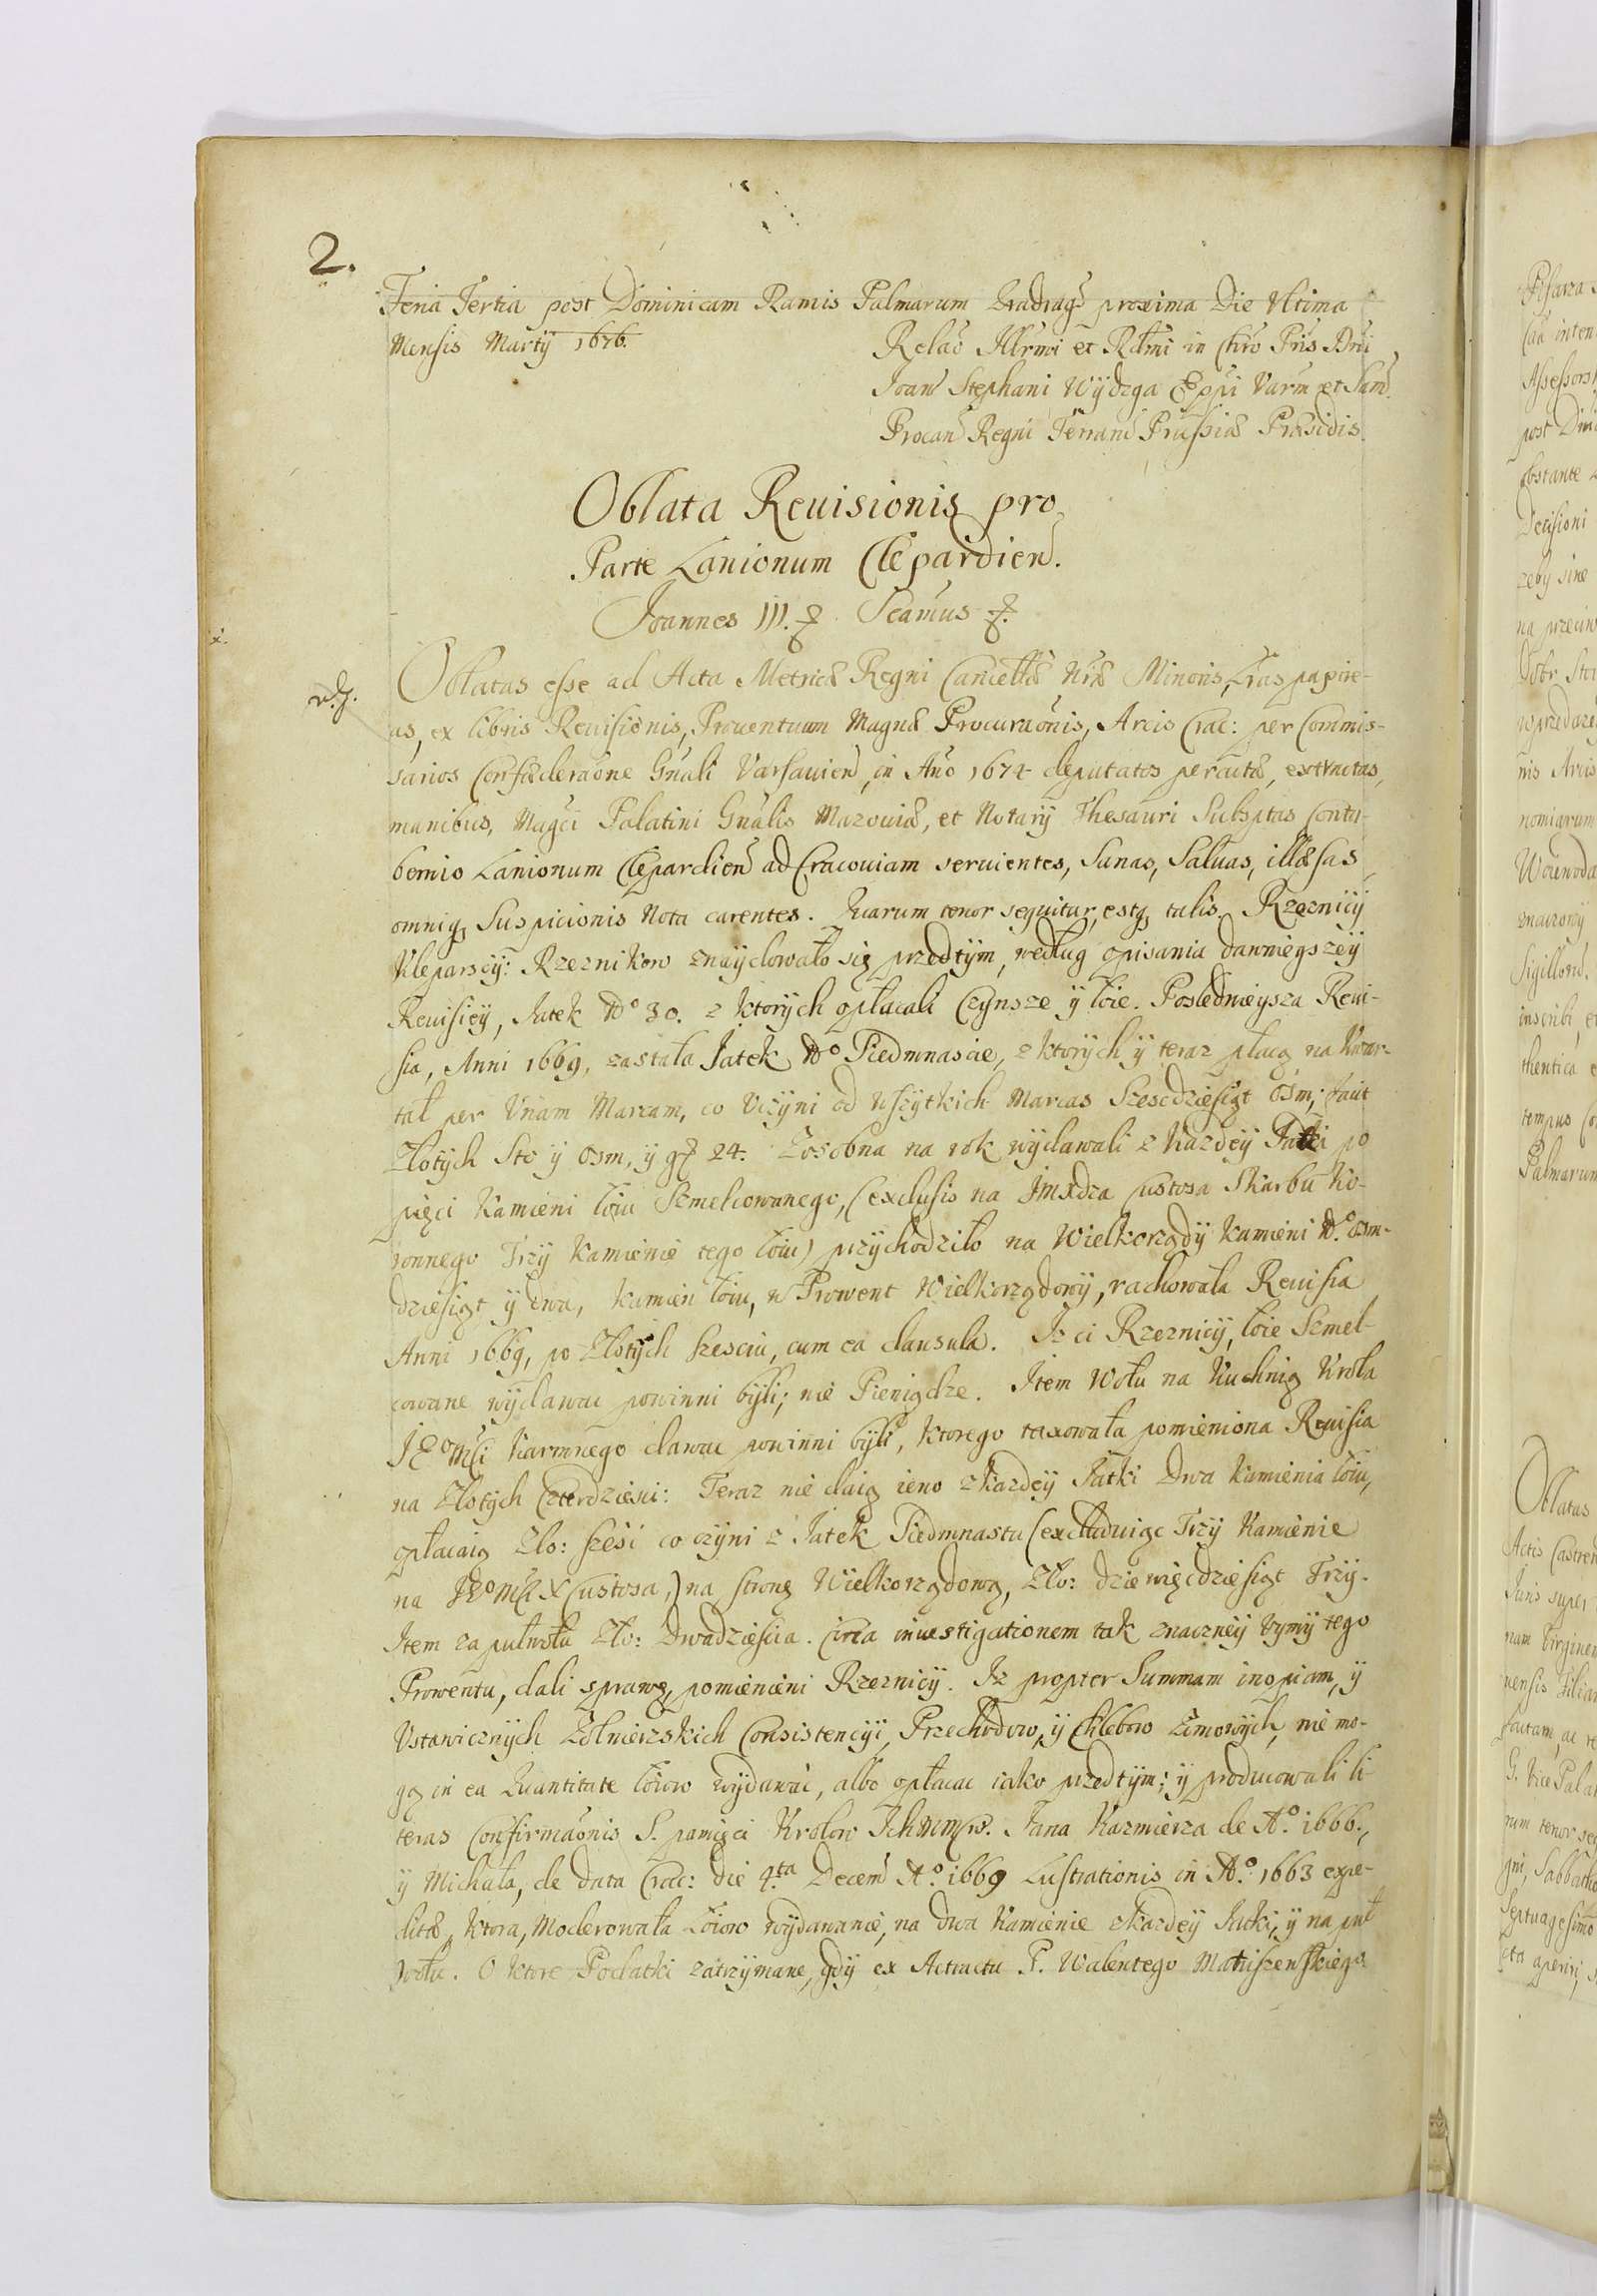 2.
Feria Tertia post Dominicam Ramis Palmarum Quadrags proxima Die Vltima
Mensis Martÿ 1676.
Relaõ Illrmi et Rdmi in Chro Pris Dni
Joan Stephani Wÿdzga Eppi Varm et Sam
Procan Regni Terrarū Prussiæ Præsidis.
Oblata Reuisionis pro
Parte Lanionum Clepardien.
Joannes III. Seamus
Oblatas esse ad Acta Metricæ Regni Cancellæ Nræ Minoris, Lras papire-
as, ex libris Reuisionis, Prouentuum Magnæ Procuraõnis, Arcis Crac: per Commis-
sarios Confæderaõne Gnali Varsauien, in Año 1674 deputatos peractæ, extractas,
manibus, Magci Palatini Gnalis Mazouiæ, et Notarÿ Thesauri Subsptas Contu-
bernio Lanionum Clepardien ad Cracouiam seruientes, Sanas, Saluas, illæsas
omniq Suspicionis Nota carentes. Quarum tenor sequitur, estq talis. Rzeznicÿ
Kleparscÿ: Rzeznikow znaÿdowało się przedtÿm, według opisania dawnieÿszeÿ
Reuisieÿ, Jatek No 30. z ktorÿch opłacali Czÿnsze ÿ łoie. Poslednieÿsza Reui-
sia, Anni 1669, zastała Jatek No Siedmnascie, z ktorÿch ÿ teraz płacą na Kwar-
tał per Vnam Marcam, co Vczÿni od wszÿtkich Marcas Szescdziesiąt Osm; facit
Złotÿch Sto ÿ Osm, ÿ gr 24. Zosobna na rok wÿdawali z każdeÿ Jatki po
pięci Kamieni łoiu Szmelcowanego, (exclusis na JmXdza Custosa Skarbu Ko-
ronnego Trzÿ Kamienie tego łoiu) przÿchodziło na Wielkorządÿ Kamieni No osm-
dziesiąt ÿ dwa, Kamien łoiu, w Prowent Wielkorządowÿ, rachowała Reuisia
Anni 1669, po Złotÿch szesciu, cum ea clausula. Iz ci Rzeznicÿ, łoie Szmel-
cowane wÿdawac powinni bÿli; nie Pieniądze. Item Wołu na Kuchnią Krola
JEoMci Karmnego dawac powinni bÿli, ktorego taxowała pomieniona Reuisia
na Złotÿch Czterdziesci: Teraz nie daią ieno z kazdeÿ Jatki Dwa Kamienia łoiu,
opłacaią Zło: szesc co czÿni z Jatek Siedmnastu (excluduiąc Trzÿ Kamienie
na JEoMci X Custosa,) na stronę Wielkorządową, Zło: dziewięcdziesiąt Trzÿ.
Item za pułwołu Zło: Dwadziescia. Circa inuestigationem tak znaczneÿ vÿmÿ tego
Prowentu, dali sprawę, pomienieni Rzeznicÿ. Iz propter Summam inopiam, ÿ
Vstawicznÿch Zołnierzskich Consistencÿi, Przechodow, ÿ Chlebow Zimowÿch, nie mo-
gą in ea Quantitate łoiow wÿdawac, albo opłacac iako przedtÿm; ÿ producowali li-
teras Confirmaõnis S. pamięci Krolow Ichmmsw. Jana Kazmierza de Ao. 1666.,
ÿ Michała, de data Crac: die 4.ta Decem Ao. 1669 Lustrationis in Ao. 1663 expe-
ditæ, ktora, Moderowała Łoiow wÿdawanie, na dwa Kamienie z kazdeÿ Jatki, ÿ na puł
wołu. O ktore Podatki zatrzÿmane, gdÿ ex Actractu P. Walentego Matuszenskiego